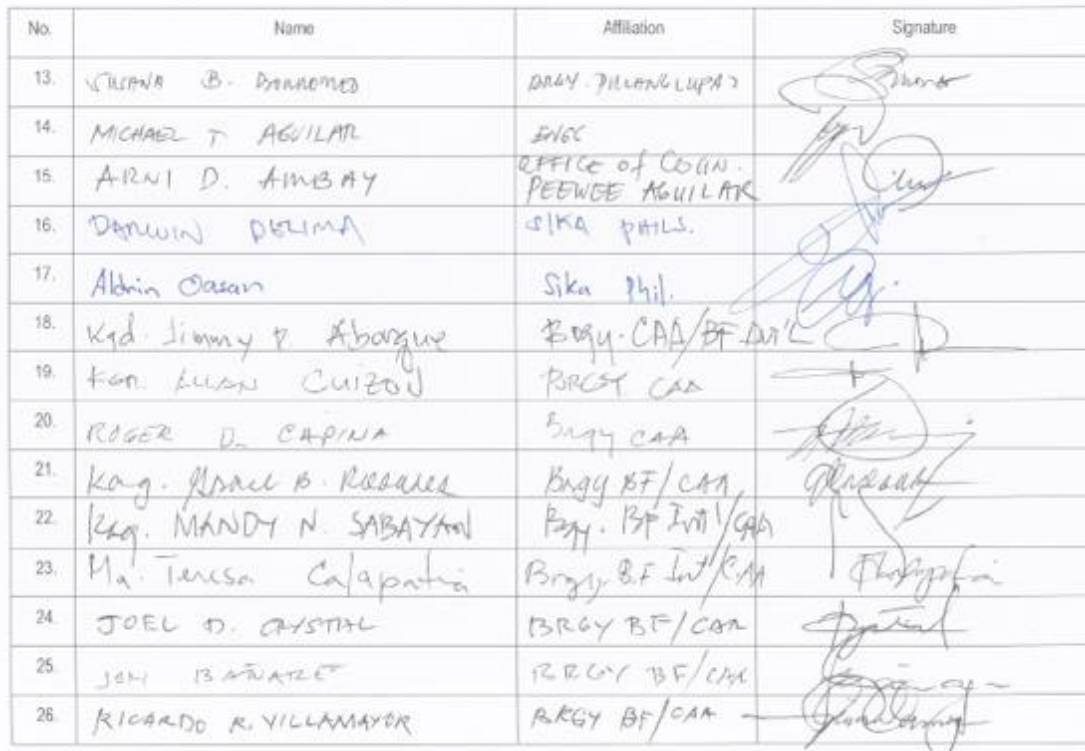 No. Name Affiliation Signature
13. SUSANA B. BORROMEO BRGY. PULANG LUPA 2
14. MICHAEL T AGUILAR ENGG
15. ARNI D. AMBAY OFFICE of COUN. PEEWEE AGUILAR
16. DARWIN DELIMA SIKA PHILS.
17. Aldrin Oasan Sika Phil.
18. Kgd. Jimmy P Aborque Brgy. CAA/BF Int'l
19. LUAN CUIZON BRGY CAA
20. ROGER D. CAPINA Brgy CAA
21. Kag. B. Rosales Brgy BF/CAA
22. Kag. MANDY N. SABAYAN Bgy. BF Int'l/CAA
23. Ma. Teresa Calapatia Brgy. B.F Int'/CAA
24. JOEL D. CRYSTAL BRGY BF/CAA
25. JON BAÑARES BRGY BF/CAA
26. RICARDO R. VILLAMAYOR BRGY BF/CAA